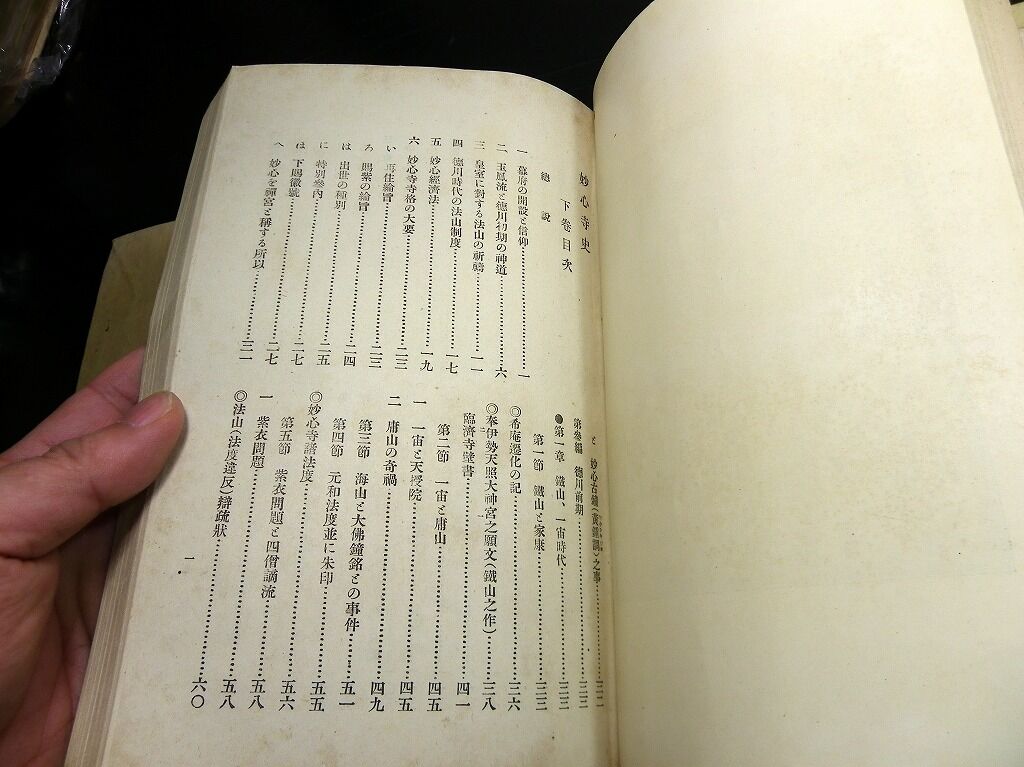 妙心寺史
下卷目次
總說
一 幕府の開設と信仰……一
二 玉鳳流と德川初期の神道……六
三 皇室に對する法山の祈禱……一一
四 德川時代の法山制度……一七
五 妙心經濟法……一九
六 妙心寺寺格の大要……二三
い 再住綸旨……二三
ろ 賜紫の綸旨……二三
は 出世の種別……二四
に 特別參內……二五
ほ 下賜徽號……二七
へ 妙心を禪宮と稱する所以……三一
と 妙心古鐘(黃鐘調)之事……三二
第參編 德川前期……三三
●第一章 鐵山、一宙時代……三三
第一節 鐵山と家康……三三
◎希庵遷化の記……三六
◎奉伊勢天照大神宮之願文(鐵山之作)……三八
臨濟寺壁書……四一
第二節 一宙と庸山……四五
一 一宙と天授院……四五
二 庸山の奇禍……四九
第三節 海山と大佛鐘銘との事件……五一
第四節 元和法度並に朱印……五五
◎妙心寺諸法度……五五
第五節 紫衣問題と四僧謫流……五六
一 紫衣問題……五八
◎法山(法度違反)辯疏狀……六〇
一